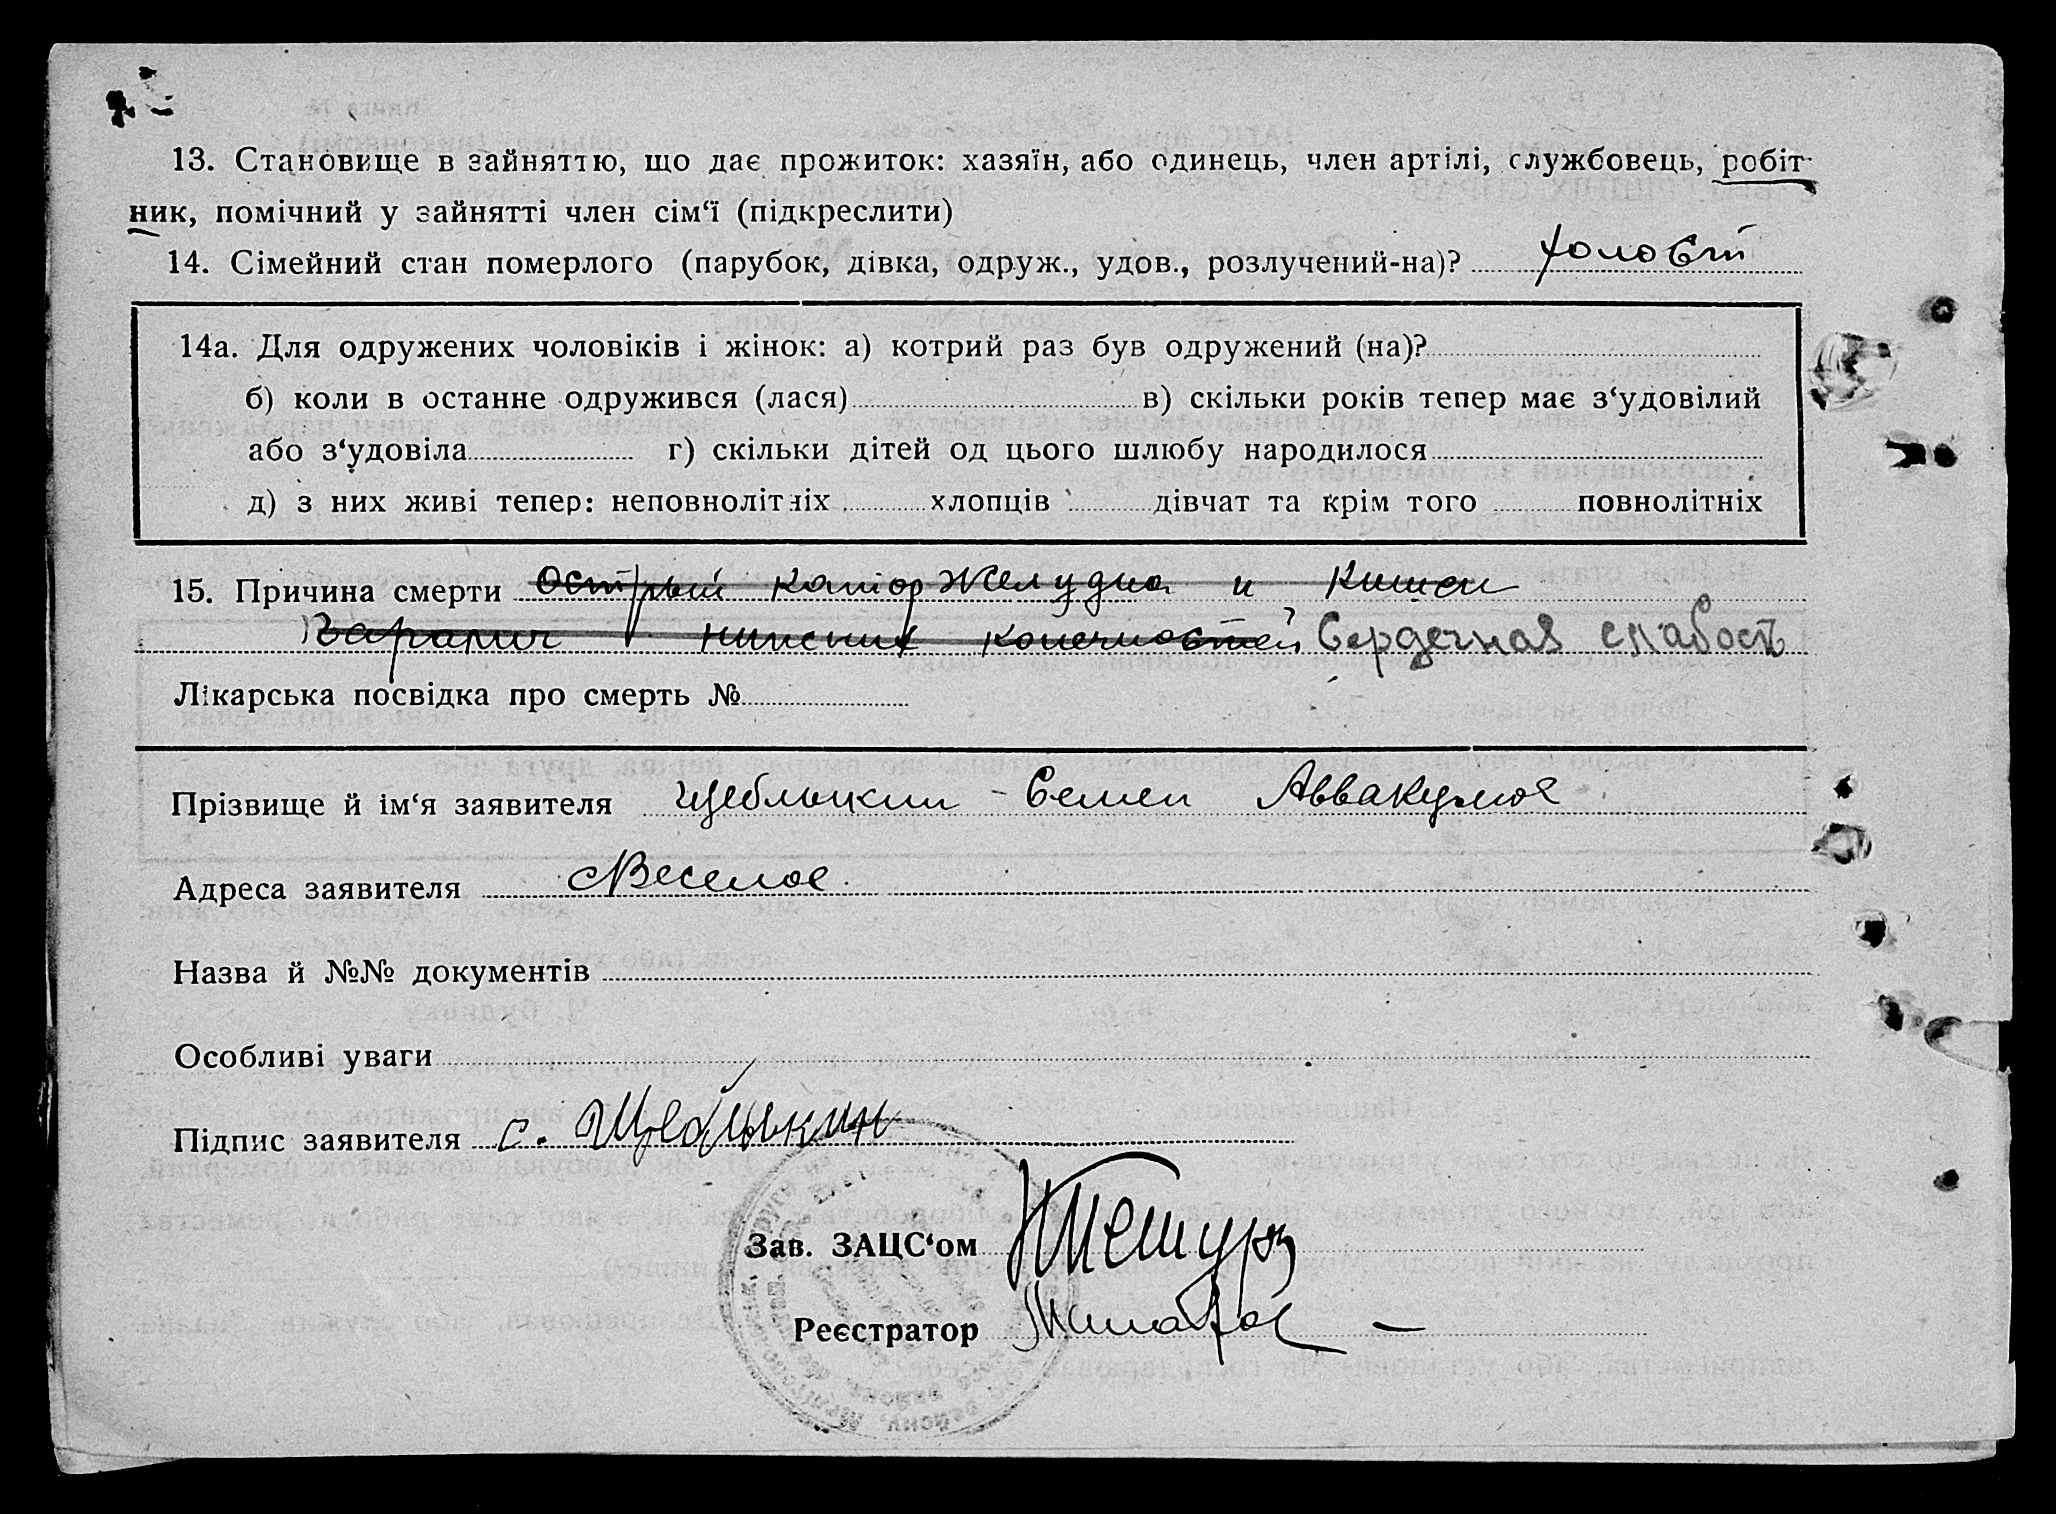 13. Становище в зайняттю, що дає прожиток: хазяїн, або одинець, член артілі, службовець, робіт-
ник, помічний у зайнятті член сім‘ї (підкреслити)
14. Сімейний стан померлого (парубок, дівка, одруж., удов., розлучений-на)? холост
14а. Для одружених чоловіків і жінок: а) котрий раз був одружений (на)?
б) коли в останне одружився (лася) в) скільки років тепер має з‘удовілий
або з‘удовіла г) скільки дітей од цього шлюбу народилося
д) з них живі тепер: неповнолітніх хлопців дівчат та крім того повнолітніх
15. Причина смерти Острый катар желудка и кишек
Паралич нижних конечностей Сердечная слабость
Лікарська посвідка про смерть №
Прізвище й ім‘я заявителя Щеблыкин Семен Аввакумов
Адреса заявителя с Веселое
Назва й №№ документів
Особливі уваги
Підпис заявителя С. Щеблыкин
Зав. ЗАЦС‘ом
Реєстратор